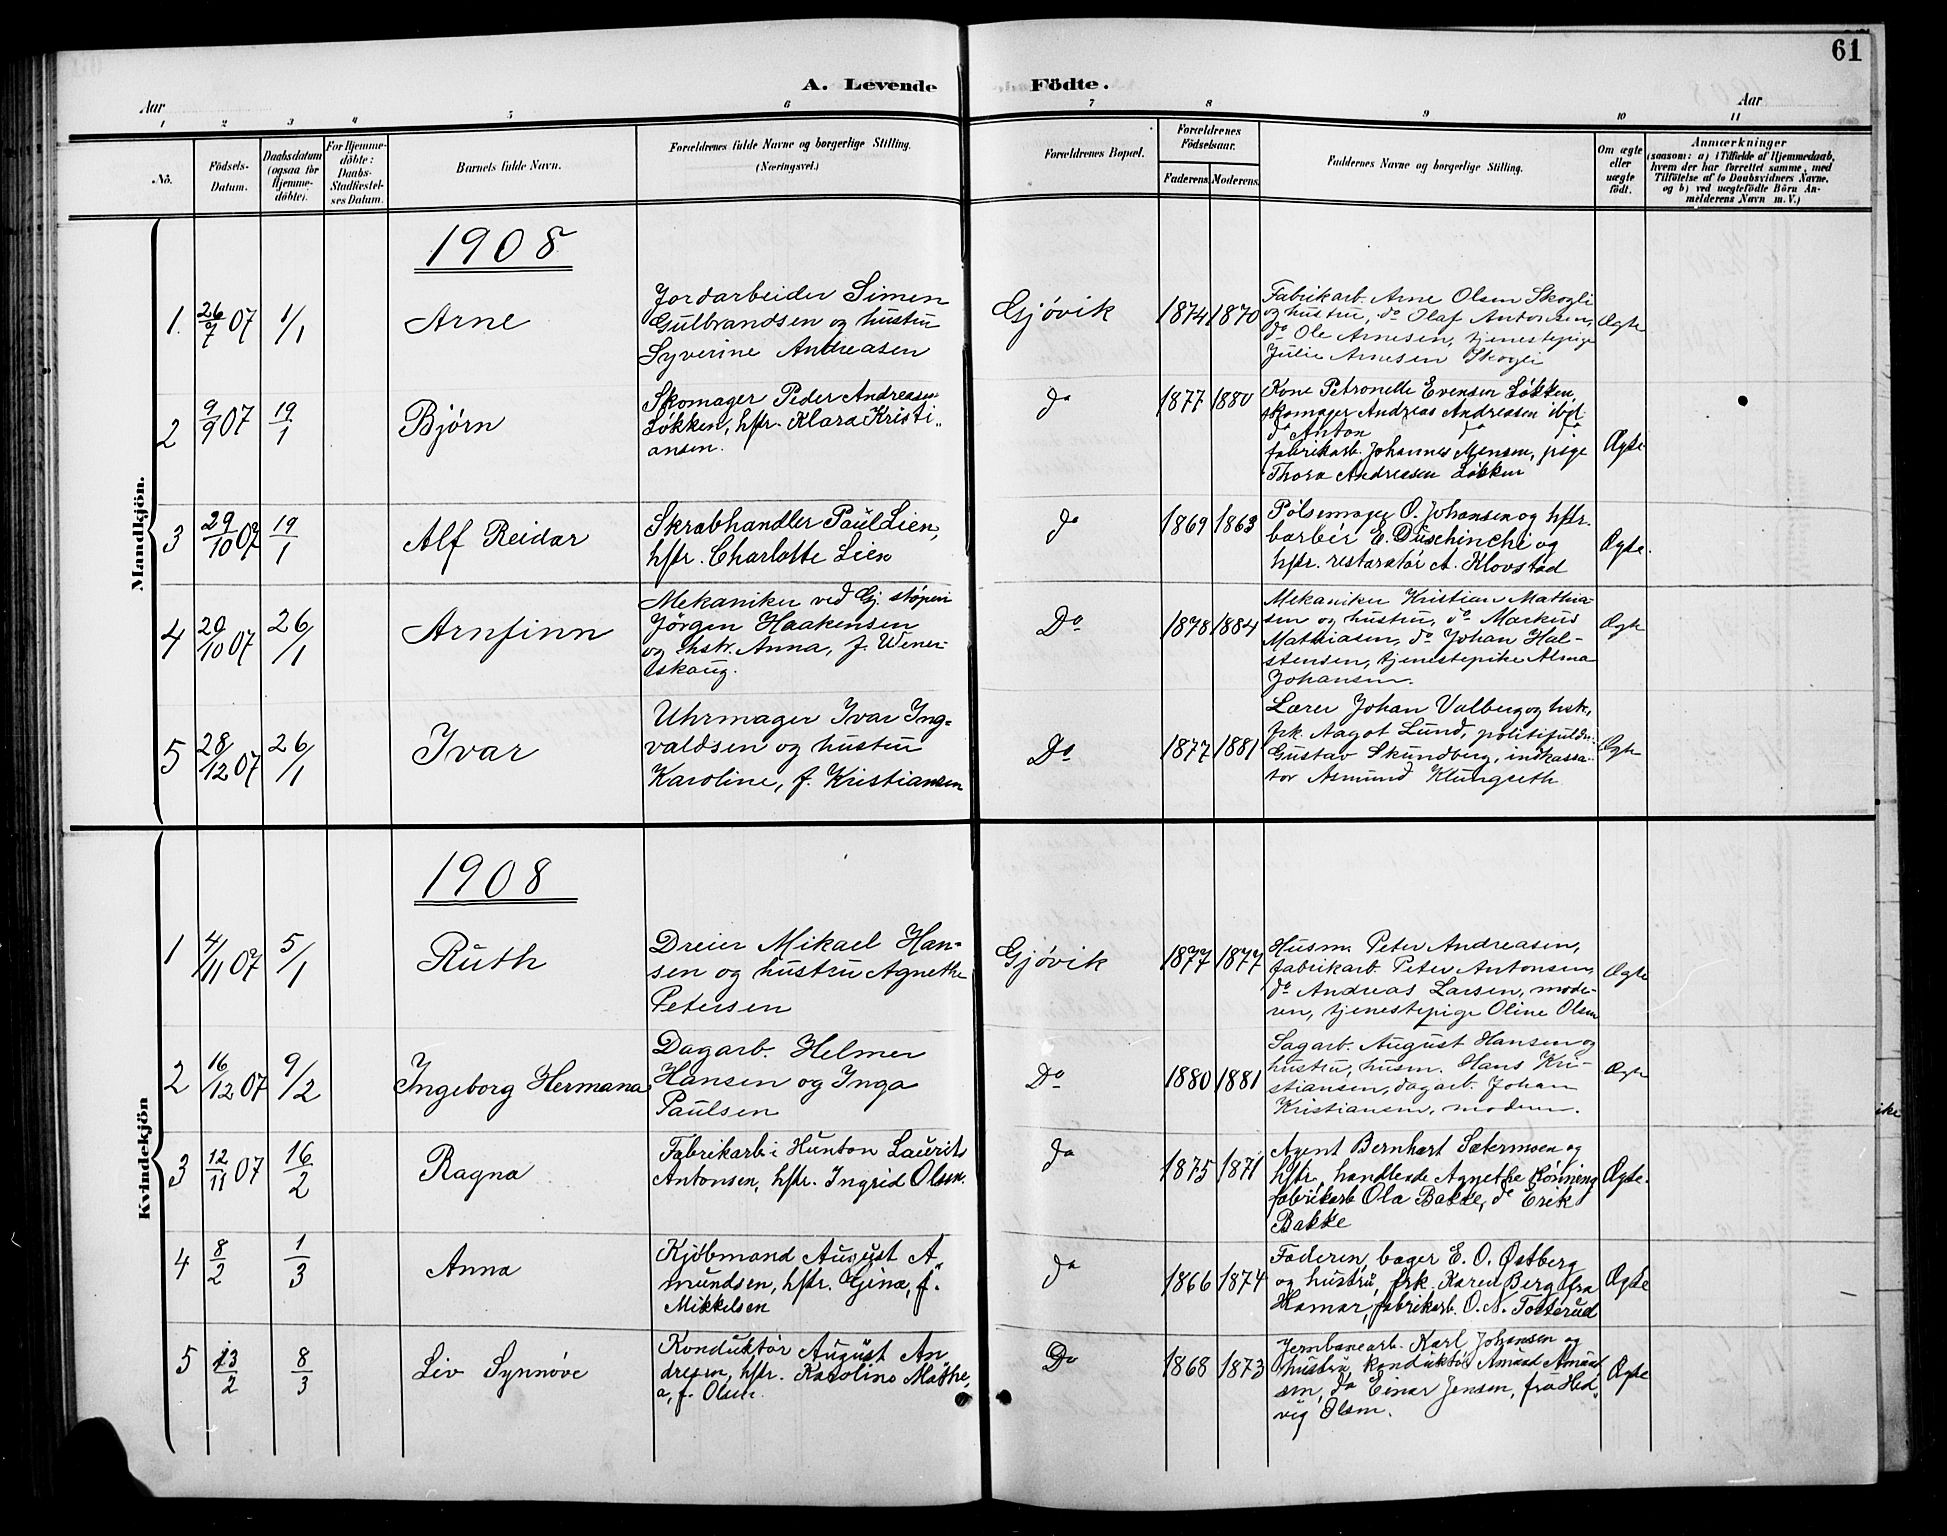 61
A. Levende Födte.
Aar
Aar
1 2 3 4 5 6 7 8 9 10 11
No.
Födsels-
Datum.
Daabsdatum
(ogsaa for
Hjemme-
døbte).
For Hjemme-
døbte:
Daabs-
Stadfæstel-
ses Datum.
Barnets fulde Navn.
Forældrenes fulde Navne og borgerlige Stilling.
(Næringsvei.)
Forældrenes Bopæl.
Forældrenes
Födselsaar.
Faderens. Moderens.
Faddernes Navne og borgerlige Stilling.
Om ægte
eller
uægte
födt.
Anmærkninger
(saasom: a) i Tilfælde af Hjemmedaab,
hvem der har forrettet samme, med
Tilföielse af to Daabsvidners Navne.
og b) ved uægtefødte Börn An-
melderens Navn m. V.)
Mandkjön.
1908
1. 26/7 07 1/1 Arne
Jordarbeider Simen
Gulbrandsen og hustru
Syverine Andreasen
Gjøvik 1874 1870
Fabrikarb. Arne Olsen Skogli
og hustru, do Olaf Antonsen,
do Ole Arnesen, tjenestepige
Julie Arnesen Skogli
Ægte
2 9/9 07 19/1 Bjørn
Skomager Peder Andreassen
Løkken, hstr. Klara Kristi„
ansen.
do 1877 1880
Kone Petronelle Evensen Løkken,
skomager Andreas Andreasen ibd.
do Anton do do
fabrikarb. Johannes Mensen, pige
Thora Andreasen Løkken
Ægte
3 29/10 07 19/1 Alf Reidar
Skrabhandler Paul Lien,
hstr. Charlotte Lien
do 1869 1863
Pølsemager O. Johansen og hstr.
barbér E. Duschinchi og
hstr. restaratør A. Klovstad
Ægte.
4 20/10 07 26/1 Arnfinn
Mekaniker ved Gj. støperi
Jørgen Haakensen
og hstr. Anna, f. Wener-
skaug.
Do 1878 1884
Mekaniker Kristian Mathia-
sen og hustru, do Markus
Mathiasen, do Johan Hal-
stensen, tjenestepike Alma
Johansen.
Ægte
5 28/12 07 26/1 Ivar
Uhrmager Ivar Ing-
valdsen og hustru
Karoline, f. Kristiansen
Do 1877 1881
Lærer Johan Valberg og hsk,
frk. Aagot Lund, politifuldm.
Gustav Skundberg, indkassa-
tor Asmund Klungseth.
Ægte
Kvindekjön
1908
1 4/11 07 5/1 Ruth
Dreier Mikael Han-
sen og hustru Agnethe
Petersen
Gjøvik 1877 1877
Husm. Peter Andreasen,
fabrikarb. Peter Antonsen,
do Andreas Larsen, mode-
ren, tjenestepige Oline Olsen
Ægte
2 16/12 07 9/2 Ingeborg Hermana
Dagarb. Helmer
Hansen og Inga
Paulsen
Do 1880 1881
Sagarb. August Hansen og
hustru, husm. Hans Kri-
stiansen, dagarb. Johan
Kristiansen, moderen.
Ægte
3 12/11 07 16/2 Ragna
Fabrikarb i Hunton Laurits
Antonsen, hstr. Ingrid Olsen.
do 1875 1871
Agent Bernhart Sætermoen og
hstr., handlende Agnethe Rønning
fabrikarb Ola Bakke, do Erik
Bakke
Ægte.
4 8/2 1/3 Anna
Kjøbmand August A„
mundsen, hstr. Gjena, f.
Mikkelsen
do 1866 1874
Faderen, bager E. O. Østberg
og hustru, frk. Karen Berg fra
Hamar, fabrikarb. O. N. Tosterud
Ægte
5 13/2 8/3 Liv Synnøve
Konduktør August An
dresen, hstr. Karoline Mathe„
a, f. Olsen.
Do 1868 1873
Jernbanearb. Karl Johansen og
hustru, konduktør Amund Amund
sen, do Einar Jensen, fru Hed„
vig Olsen.
Ægte